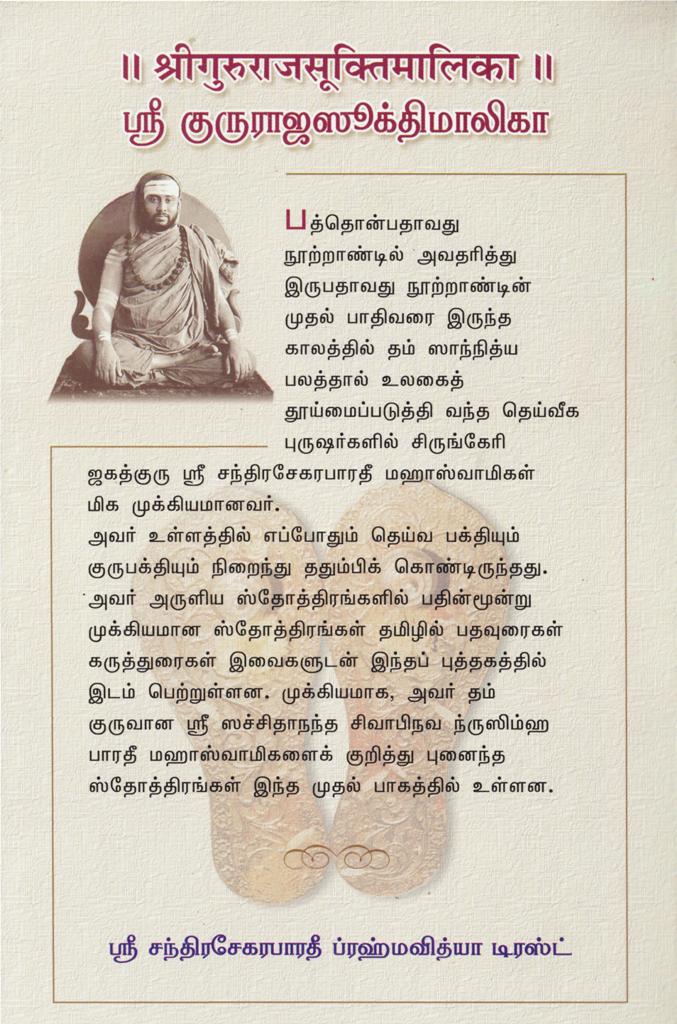 ॥ श्रीगुरुराजसूक्तिमालिका ॥
ஸ்ரீ குருராஜஸூக்திமாலிகா
பத்தொன்பதாவது
நூற்றாண்டில் அவதரித்து
இருபதாவது நூற்றாண்டின்
முதல் பாதிவரை இருந்த
காலத்தில் தம் ஸாந்நித்ய
பலத்தால் உலகைத்
தூய்மைப்படுத்தி வந்த தெய்வீக
புருஷர்களில் சிருங்கேரி
ஜகத்குரு ஸ்ரீ சந்திரசேகரபாரதீ மஹாஸ்வாமிகள்
மிக முக்கியமானவர்.
அவர் உள்ளத்தில் எப்போதும் தெய்வ பக்தியும்
குருபக்தியும் நிறைந்து ததும்பிக் கொண்டிருந்தது.
அவர் அருளிய ஸ்தோத்திரங்களில் பதின்மூன்று
முக்கியமான ஸ்தோத்திரங்கள் தமிழில் பதவுரைகள்
கருத்துரைகள் இவைகளுடன் இந்தப் புத்தகத்தில்
இடம் பெற்றுள்ளன. முக்கியமாக, அவர் தம்
குருவான ஸ்ரீ ஸச்சிதாநந்த சிவாபிநவ ந்ருஸிம்ஹ
பாரதீ மஹாஸ்வாமிகளைக் குறித்து புனைந்த
ஸ்தோத்திரங்கள் இந்த முதல் பாகத்தில் உள்ளன.
ஸ்ரீ சந்திரசேகரபாரதீ ப்ரஹ்மவித்யா டிரஸ்ட்